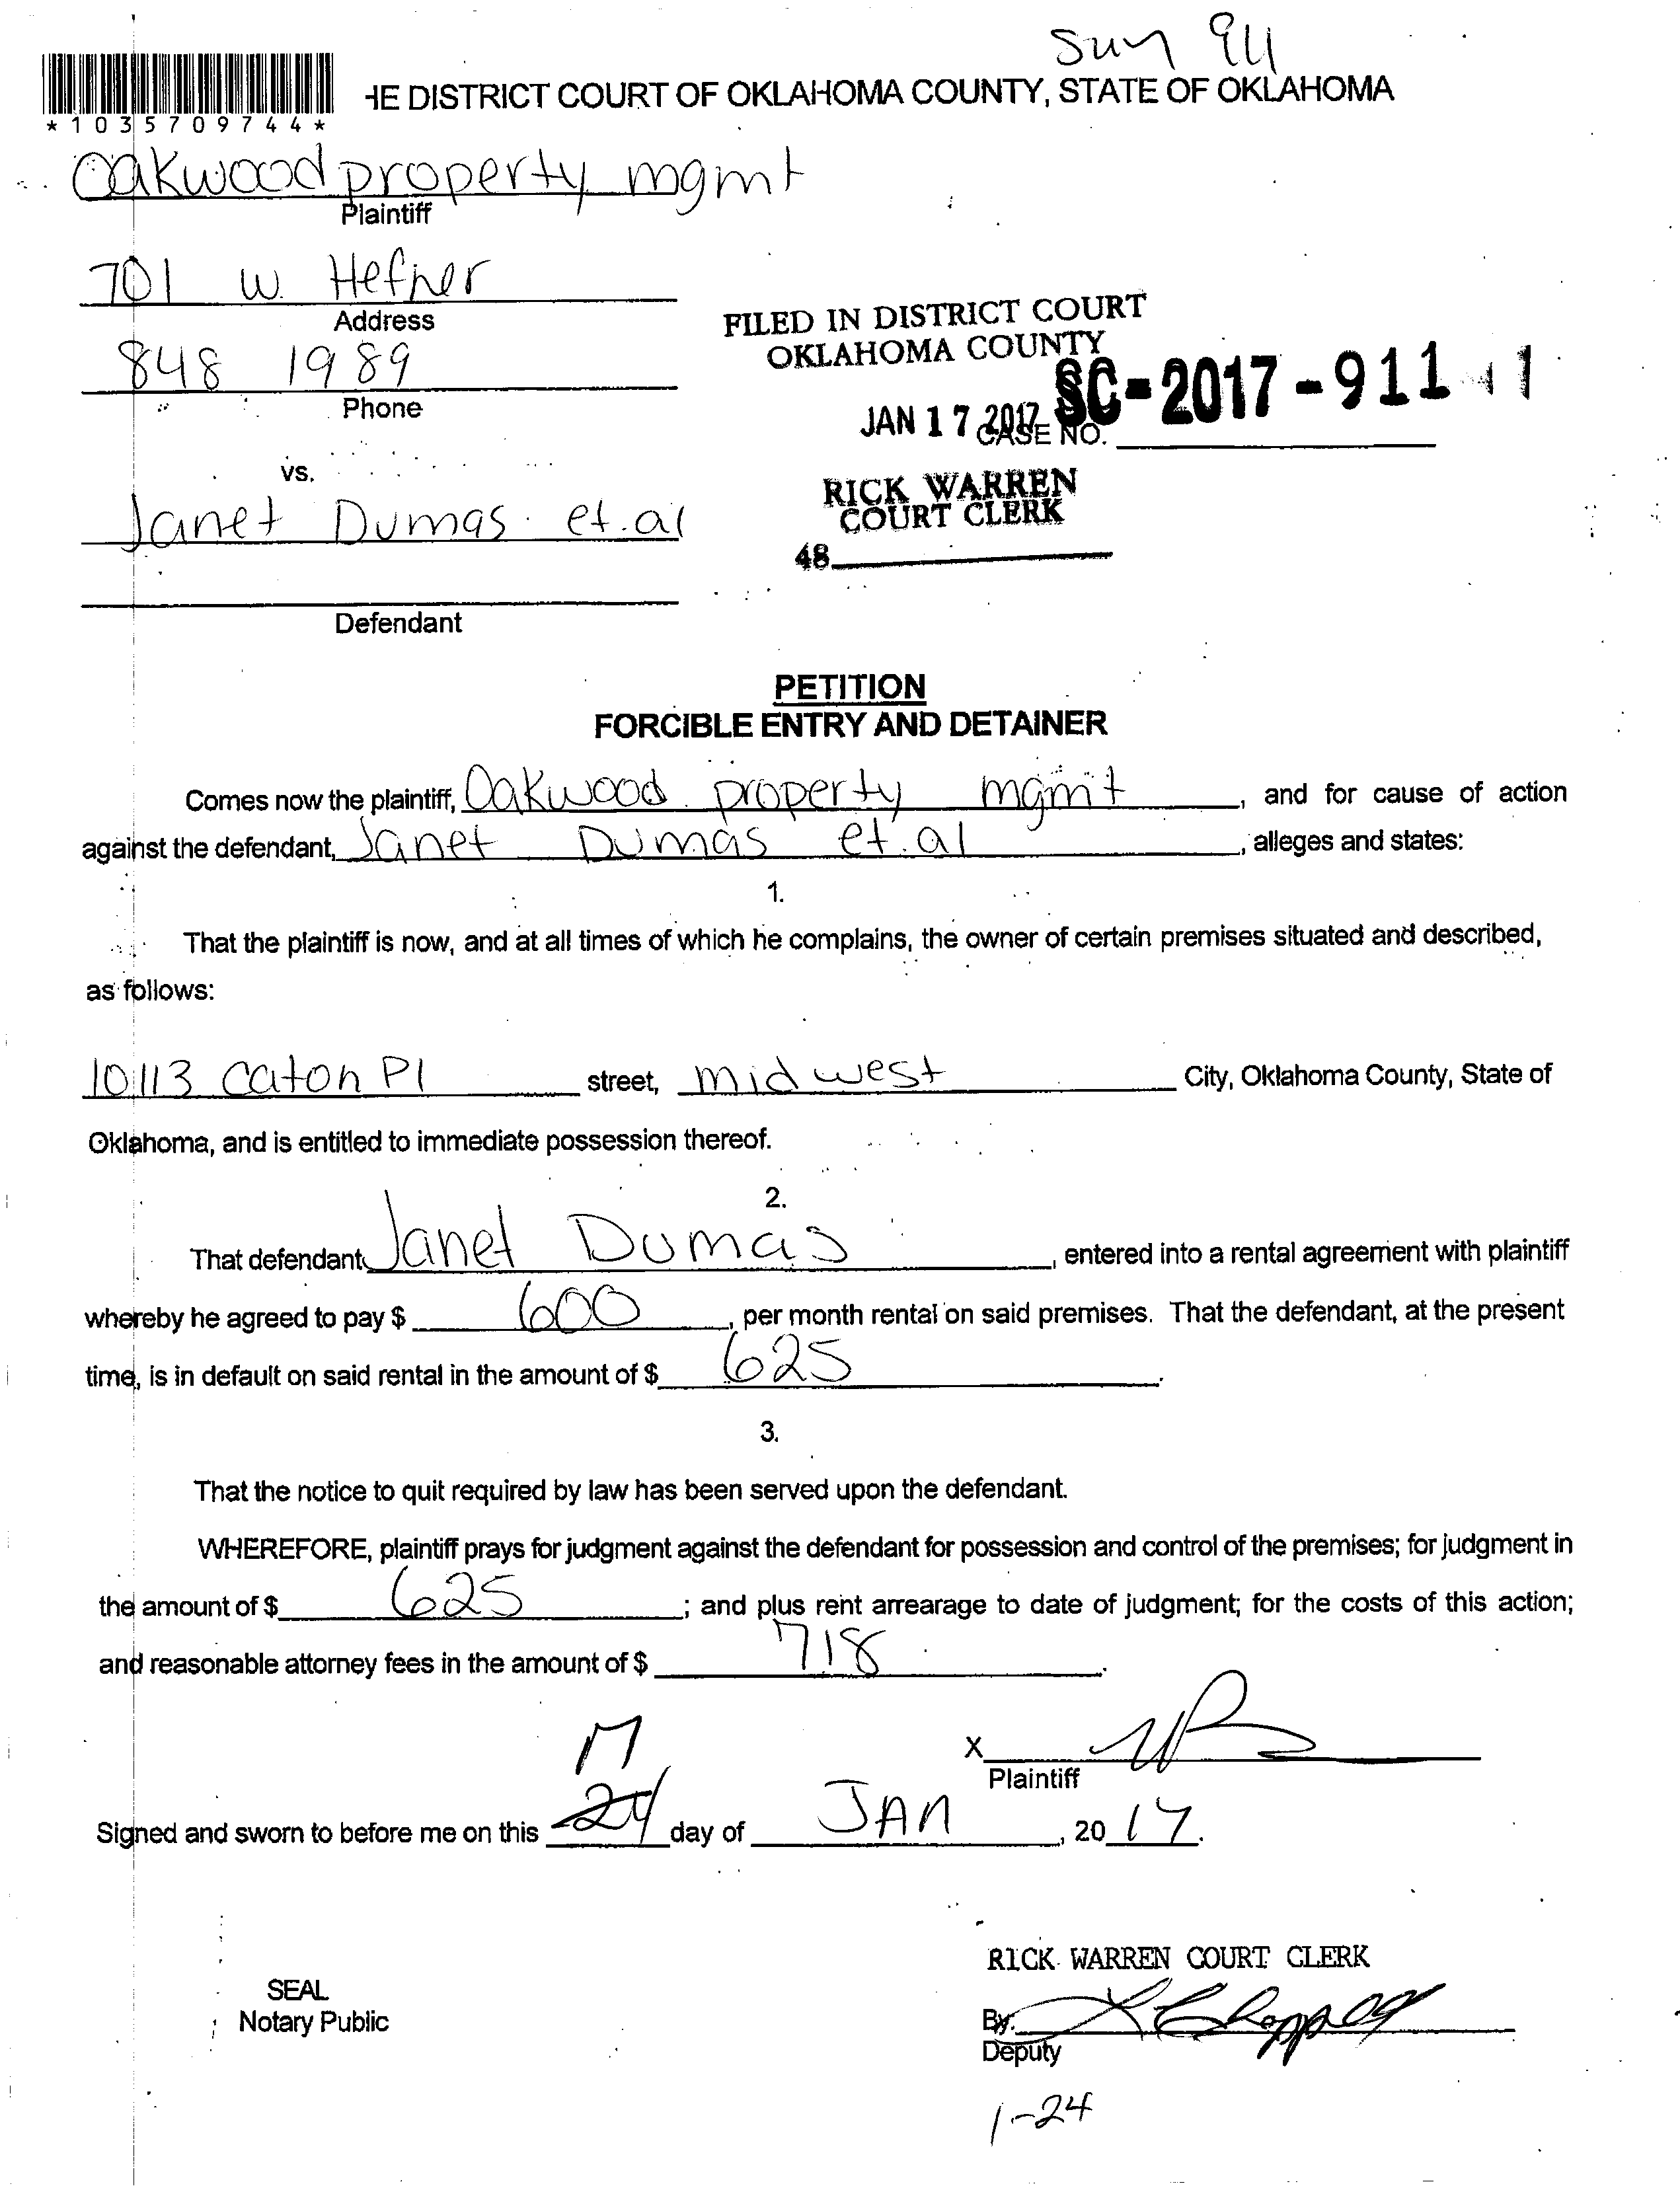 Sum 911
HE DISTRICT COURT OF OKLAHOMA COUNTY, STATE OF OKLAHOMA
*1035709744*
Oakwood property mgmt
Plaintiff
701 W. Hefner
Address
848 1989
Phone
FILED IN DISTRICT COURT
OKLAHOMA COUNTY
JAN 17 2017
CASE NO. SC-2017-911
RICK WARREN
COURT CLERK
48
vs.
Janet Dumas et.al
Defendant
PETITION
FORCIBLE ENTRY AND DETAINER
Comes now the plaintiff, Oakwood property mgmt, and for cause of action
against the defendant, Janet Dumas et.al, alleges and states:
1.
That the plaintiff is now, and at all times of which he complains, the owner of certain premises situated and described,
as follows:
10113 Caton Pl street, midwest City, Oklahoma County, State of
Oklahoma, and is entitled to immediate possession thereof.
2.
That defendant Janet Dumas, entered into a rental agreement with plaintiff
whereby he agreed to pay $ 600, per month rental on said premises. That the defendant, at the present
time, is in default on said rental in the amount of $ 625.
3.
That the notice to quit required by law has been served upon the defendant.
WHEREFORE, plaintiff prays for judgment against the defendant for possession and control of the premises; for judgment in
the amount of $ 625; and plus rent arrearage to date of judgment; for the costs of this action;
and reasonable attorney fees in the amount of $ 718.
X
Plaintiff
17
Signed and sworn to before me on this 24 day of JAN, 20 17.
SEAL
Notary Public
RICK WARREN COURT CLERK
By:
Deputy
1-24